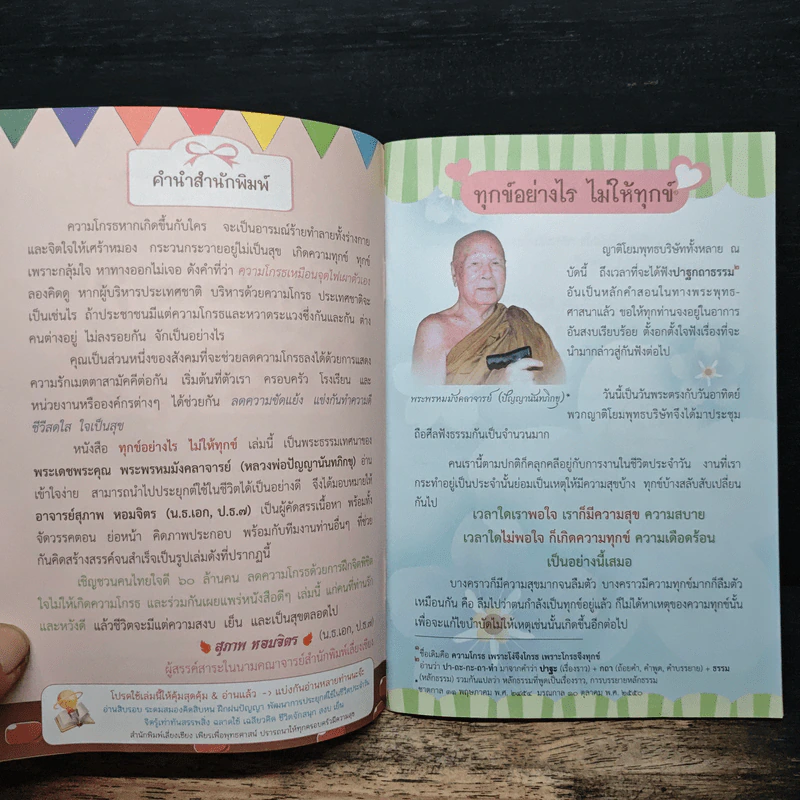 คำนำสำนักพิมพ์
ความโกรธหากเกิดขึ้นกับใคร จะเป็นอารมณ์ร้ายทำลายทั้งร่างกาย
และจิตใจให้เศร้าหมอง กระวนกระวายอยู่ไม่เป็นสุข เกิดความทุกข์ ทุกข์
เพราะกลุ้มใจ หาทางออกไม่เจอ ดังคำที่ว่า ความโกรธเหมือนจุดไฟเผาตัวเอง
ลองคิดดู หากผู้บริหารประเทศชาติ บริหารด้วยความโกรธ ประเทศชาติจะ
เป็นเช่นไร ถ้าประชาชนมีแต่ความโกรธและหวาดระแวงซึ่งกันและกัน ต่าง
คนต่างอยู่ ไม่ลงรอยกัน จักเป็นอย่างไร
คุณเป็นส่วนหนึ่งของสังคมที่จะช่วยลดความโกรธลงได้ด้วยการแสดง
ความรักเมตตาสามัคคีต่อกัน เริ่มต้นที่ตัวเรา ครอบครัว โรงเรียน และ
หน่วยงานหรือองค์กรต่างๆ ได้ช่วยกัน ลดความขัดแย้ง แข่งกันทำความดี
ชีวีสดใส ใจเป็นสุข
หนังสือ ทุกข์อย่างไร ไม่ให้ทุกข์ เล่มนี้ เป็นพระธรรมเทศนาของ
พระเดชพระคุณ พระพรหมมังคลาจารย์ (หลวงพ่อปัญญานันทภิกขุ) อ่าน
เข้าใจง่าย สามารถนำไปประยุกต์ใช้ในชีวิตได้เป็นอย่างดี จึงได้มอบหมายให้
อาจารย์สุภาพ หอมจิตร (น.ธ.เอก, ป.ธ.๗) เป็นผู้คัดสรรเนื้อหา พร้อมทั้ง
จัดวรรคตอน ย่อหน้า คิดภาพประกอบ พร้อมกับทีมงานท่านอื่นๆ ที่ช่วย
กันคิดสร้างสรรค์จนสำเร็จเป็นรูปเล่มดังที่ปรากฏนี้
เชิญชวนคนไทยใจดี ๖๐ ล้านคน ลดความโกรธด้วยการฝึกจิตพิชิต
ใจไม่ให้เกิดความโกรธ และร่วมกันเผยแพร่หนังสือดีๆ เล่มนี้ แก่คนที่ท่านรัก
และหวังดี แล้วชีวิตจะมีแต่ความสงบ เย็น และเป็นสุขตลอดไป
สุภาพ หอมจิตร (น.ธ.เอก, ป.ธ.๗)
ผู้สรรค์สาระในนามคณาจารย์สำนักพิมพ์เลี่ยงเชียง
โปรดใช้เล่มนี้ให้คุ้มสุดคุ้ม & อ่านแล้ว -> แบ่งกันอ่านหลายท่านนะจ๊ะ
อ่านสิบรอบ ระดมสมองคิดสิบหน ฝึกฝนปัญญา พัฒนาการประยุกต์ใช้ในชีวิตประจำวัน
จิตรู้เท่าทันสรรพสิ่ง ฉลาดใช้ เฉลียวคิด ชีวิตจักสนุก สงบ เย็น
สำนักพิมพ์เลี่ยงเชียง เพียรเพื่อพุทธศาสน์ ปรารถนาให้ทุกครอบครัวมีความสุข
ทุกข์อย่างไร ไม่ให้ทุกข์
ญาติโยมพุทธบริษัททั้งหลาย ณ
บัดนี้ ถึงเวลาที่จะได้ฟังปาฐกถาธรรม๒
อันเป็นหลักคำสอนในทางพระพุทธ-
ศาสนาแล้ว ขอให้ทุกท่านจงอยู่ในอาการ
อันสงบเรียบร้อย ตั้งอกตั้งใจฟังเรื่องที่จะ
นำมากล่าวสู่กันฟังต่อไป
พระพรหมมังคลาจารย์ (ปัญญานันทภิกขุ)*
วันนี้เป็นวันพระตรงกับวันอาทิตย์
พวกญาติโยมพุทธบริษัทจึงได้มาประชุม
ถือศีลฟังธรรมกันเป็นจำนวนมาก
คนเรานี้ตามปกติก็คลุกคลีอยู่กับการงานในชีวิตประจำวัน งานที่เรา
กระทำอยู่เป็นประจำนั้นย่อมเป็นเหตุให้มีความสุขบ้าง ทุกข์บ้างสลับสับเปลี่ยน
กันไป
เวลาใดเราพอใจ เราก็มีความสุข ความสบาย
เวลาใดไม่พอใจ ก็เกิดความทุกข์ ความเดือดร้อน
เป็นอย่างนี้เสมอ
บางคราวก็มีความสุขมากจนลืมตัว บางคราวมีความทุกข์มากก็ลืมตัว
เหมือนกัน คือ ลืมไปว่าตนกำลังเป็นทุกข์อยู่แล้ว ก็ไม่ได้หาเหตุของความทุกข์นั้น
เพื่อจะแก้ไขบำบัดไม่ให้เหตุเช่นนั้นเกิดขึ้นอีกต่อไป
๑ชื่อเดิมคือ ความโกรธ เพราะโง่จึงโกรธ เพราะโกรธจึงทุกข์
๒ อ่านว่า ปา-ถะ-กะ-ถา-ทำ มาจากคำว่า ปาฐะ (เรื่องราว) + กถา (ถ้อยคำ, คำพูด, คำบรรยาย) + ธรรม
(หลักธรรม) รวมกันแปลว่า หลักธรรมที่พูดเป็นเรื่องราว, การบรรยายหลักธรรม
* ชาตกาล ๑๑ พฤษภาคม พ.ศ. ๒๔๕๔ มรณกาล ๑๐ ตุลาคม พ.ศ. ๒๕๕๐